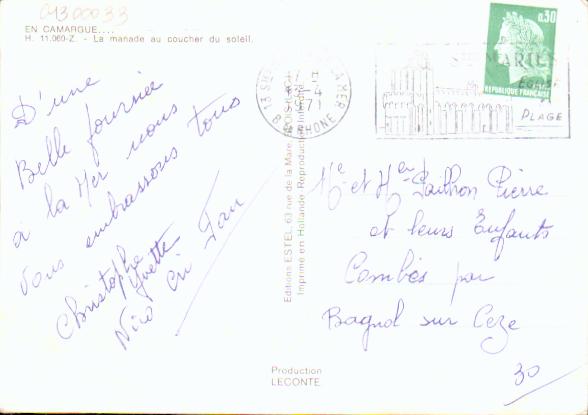 01300033
EN CAMARGUE....
H. 11.060-Z. - La manade au coucher du soleil.
D'une
Belle Journée
à la Mer nous
vous embrassons tous
Christophe
Yvette
Nico
Editions ESTEL, 63 rue de la Mare,
Imprimé en Hollande Reproduction Interdite
Production
LECONTE
0,30
REPUBLIQUE FRANÇAISE
13 STES MARIES DE LA MER
1971
B. DU RHONE
STES MARIES
EGLISE
PLAGE
et Pierre
et leurs Enfants
Combes par
Bagnol sur Ceze
30